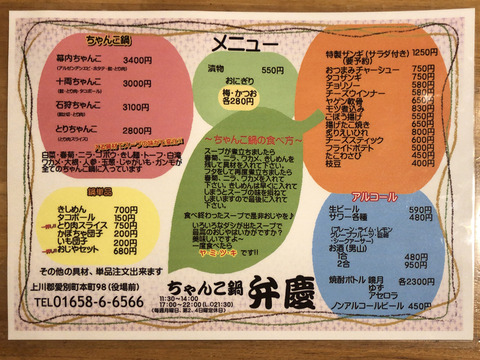 メニュー
ちゃんこ鍋
幕内ちゃんこ 3400円
十両ちゃんこ 3000円
石狩ちゃんこ 3100円
とりちゃんこ 2800円
(とり肉スライス)
白菜・春菊・ニラ・ゴボウ・きし麺・トーフ・白滝
ワカメ・大根・人参・玉葱・じゃがいも・ガガモが
全てのちゃんこ鍋に入っています
鍋単品
きしめん 700円
タコボール 150円
とり肉スライス 750円
かぼちゃ団子 200円
いも団子 200円
おじやセット 680円
その他の具材、単品注文出来ます
上川郡愛別町本町98(役場前)
TEL01658-6-6566
漬物 550円
おにぎり
梅・かつお
各280円
~ちゃんこ鍋の食べ方~
スープが煮立ちましたら
春菊、ニラ、ワカメ、きしめんを
残して具材を入れて下さい
フタをして再度煮立ちましたら
春菊、ニラ、ワカメを入れて
下さい。きしめんは早くに入れて
しまうとスープの味を短めて
しまいますので最後に入れて
下さい。
食べ終わったスープで是非おじやを♪
いろいろなダシが出たスープで
最高のおじやはいかがですか?
美味しいですよ~
一度食べたら
ヤ・ミ・ツ・キです!!
ちゃんこ鍋 弁慶
11:30~14:00
17:00~22:00 (L.O21:30)
(毎週月曜日、第2.4日曜定休日)
特製ザンギ(サラダ付き) 1250円
(要予約)
おつまみチャーシュー 750円
タコザンギ 750円
チョリソー 580円
チーズウインナー 580円
ヤゲン軟骨 650円
モツ煮込み 630円
ごぼう揚げ 550円
揚げたこ焼き 550円
炙りえいひれ 800円
チーズスティック 600円
フライドポテト 500円
たこわさび 450円
枝豆 400円
アルコール
生ビール 590円
サワー各種 480円
お酒(男山)
1合 480円
2合 950円
焼酎ボトル 鏡月 各2300円
ゆず
アセロラ
ノンアルコールビール 450円